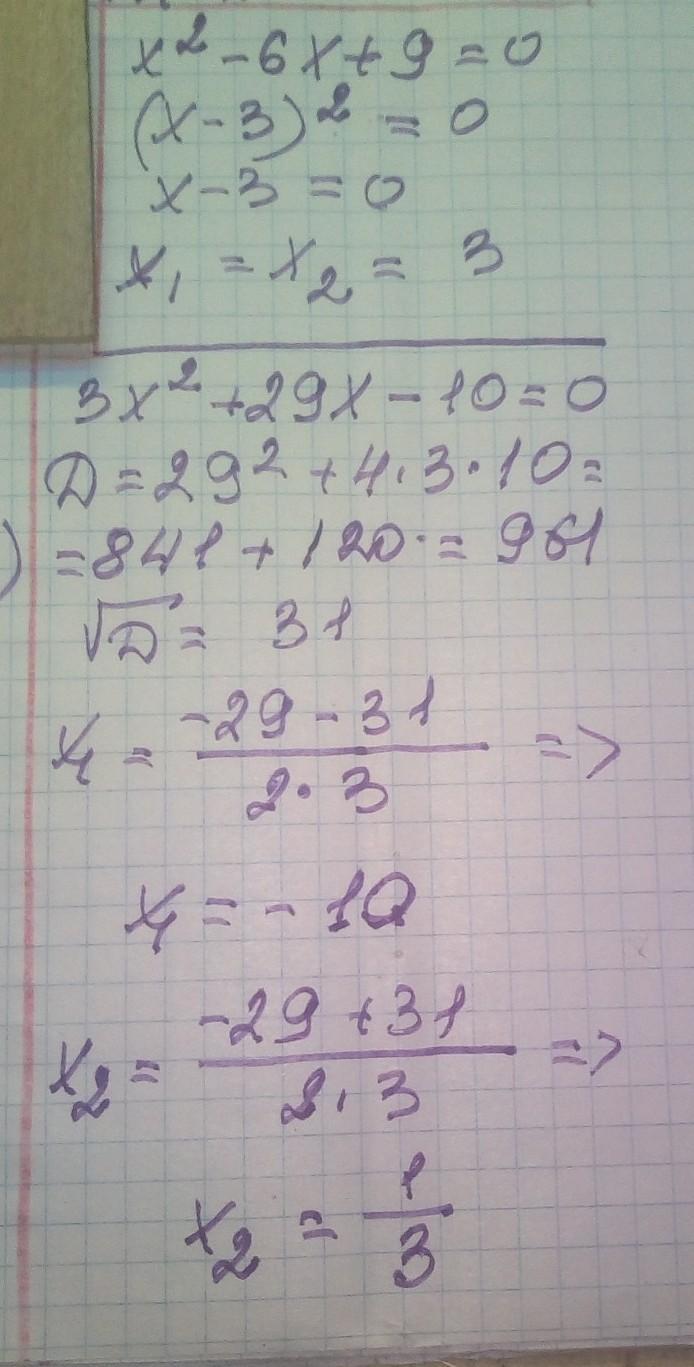 x² - 6x + 9 = 0
(x - 3)² = 0
x - 3 = 0
x₁ = x₂ = 3
3x² + 29x - 10 = 0
D = 29² + 4·3·10 =
) = 841 + 120 = 961
√D = 31
x₁ = (-29 - 31)/(2·3) =>
x₁ = -10
x₂ = (-29 + 31)/(2·3) =>
x₂ = 1/3